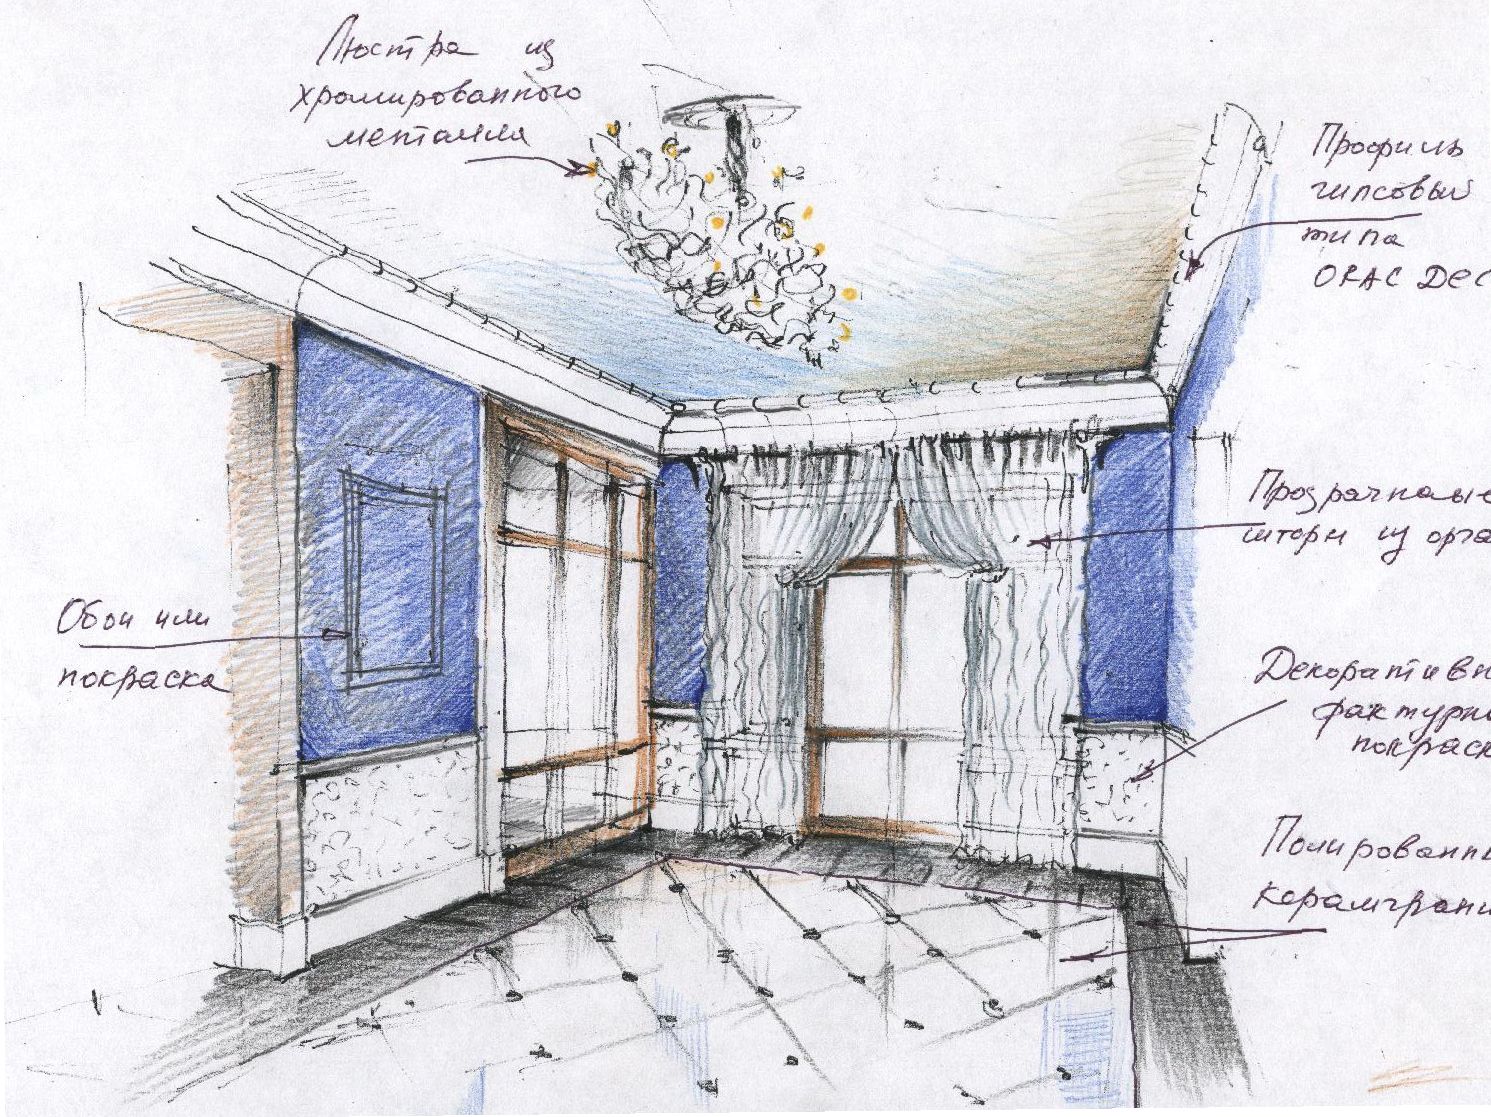 Люстра из
хромированного
металла
Профиль
гипсовый
типа
ORAC DEC
Прозрачные
шторы из орга
Обои или
покраска
Декоративн
фактурна
покраск
Полированны
керамграни